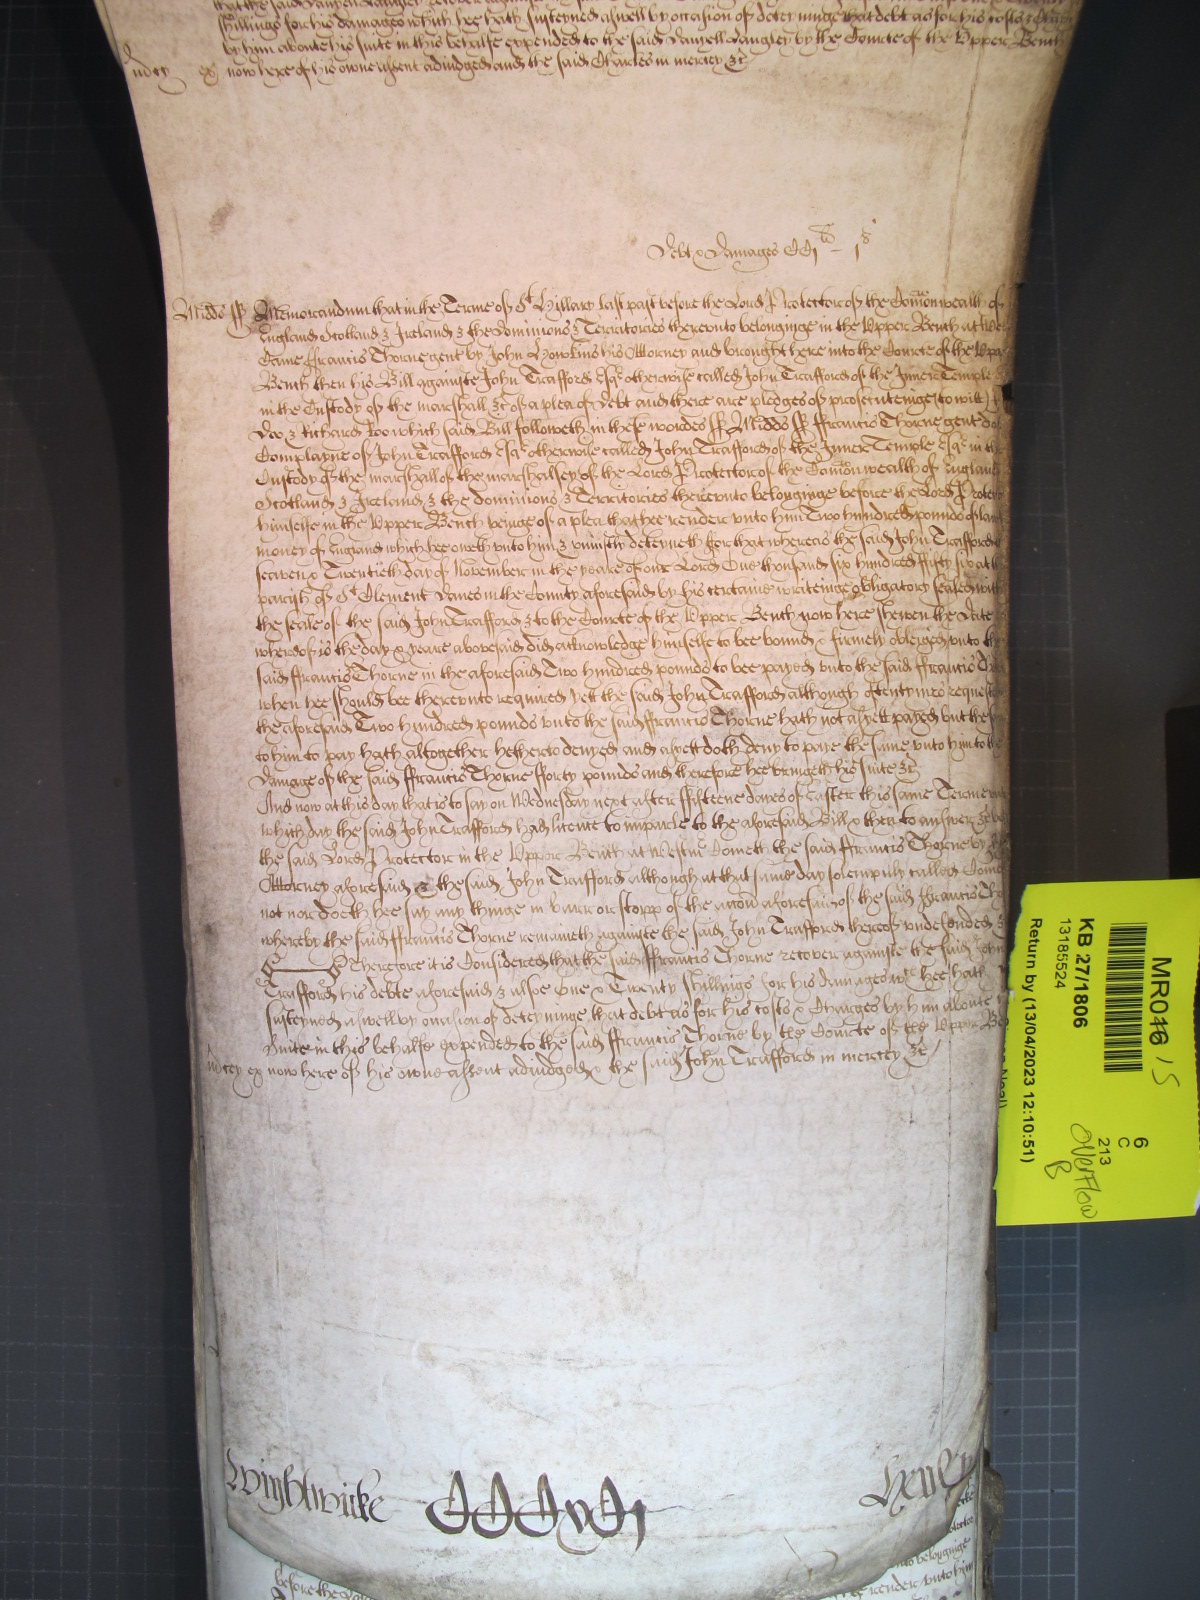 shillings for his damages which hee hath susteyned aswell by occasion of deteyninge that debt as for his costs & Charges
by him aboute his suite in this behalfe expended to the said Danyell Langley by the Courte of the Upper Bench
now here of his owne assent adiudged and the said Charles in mercy &c
Debt & Damages CCjli – js
Midds ss Memorandum that in the Terme of St Hillary last past before the Lord Protector of the Comonwealth of
England Scotland & Ireland & the dominions & Territories thereunto belonginge in the Upper Bench at
Came Francis Thorne gent by John Hawkins his Attorney and brought here into the Courte of the Upper
Bench then his Bill againste John Trafford Esqr otherwise called John Trafford of the Inner Temple
in the Custody of the marshall &c of a plea of Debt and there are pledges of prosecutinge to witt
Doe & Richard Roe which said Bill followeth in these wordes ss Midds ss Francis Thorne gent doth
Complayne of John Trafford Esqr otherwise called John Trafford of the Inner Temple Esqr in the
Custody of the marshall of the marshalsey of the Lord Protector of the Comonwealth of England
Scotland & Ireland & the dominions & Territories thereunto belonginge before the Lord Protector
himselfe in the Upper Bench beinge of a plea that hee render unto him Two hundred pounds of lawfull
money of England which hee oweth unto him & uniustly deteyneth for that whereas the said John Trafford
seaven & Twentieth day of November in the yeare of our Lord One thousand six hundred fifty six at the
parish of St Clement Danes in the County aforesaid by his certaine writeinge obligatory sealed with
the seale of the said John Trafford & to the Courte of the Upper Bench now here shewen the date
whereof is the day & yeare abovesaid did acknowledge himselfe to bee bound & firmely obleiged unto the
said Francis Thorne in the aforesaid Two hundred pounds to bee payed unto the said Francis
when hee should bee thereunto required yett the said John Trafford although oftentymes requested
the aforesaid Two hundred pounds unto the said Francis Thorne hath not as yett payed but the
to him to pay hath altogether hetherto denyed and as yett doth deny to paye the same unto him to the
damage of the said Francis Thorne fforty pounds and therefore hee bringeth his suite &c
And now at this day that is to say on Wednesday next after fifteene dayes of Easter this same Terme untill
which day the said John Trafford had licence to imparle to the aforesaid Bill & then to answer &c before
the said Lord Protector in the Upper Bench at Westmr Cometh the said Francis Thorne by his
Attorney aforesaid & the said John Trafford although at that same day solempnly called Cometh
not nor doeth hee say any thinge in barr or stopp of the accon aforesaid of the said Francis Thorne
whereby the said Francis Thorne remaineth againste the said John Trafford thereof undefended &
Therefore it is Considered that the said Francis Thorne recover againste the said John
Trafford his debte aforesaid & alsoe One & Twenty shillings for his damages wch hee hath
susteyned aswell by occasion of deteyninge that debt as for his costs & Charges by him aboute
Suite in this behalfe expended to the said Francis Thorne by the Courte of the Upper Bench
now here of his owne assent adiudged & the said John Trafford in mercy &c
Wightwicke
Henly
before the
unto belonginge
render unto him
MR046 / S
6
C
213
Overflow
B
KB 27/1806
13185524
Return by (13/04/2023 12:10:51)